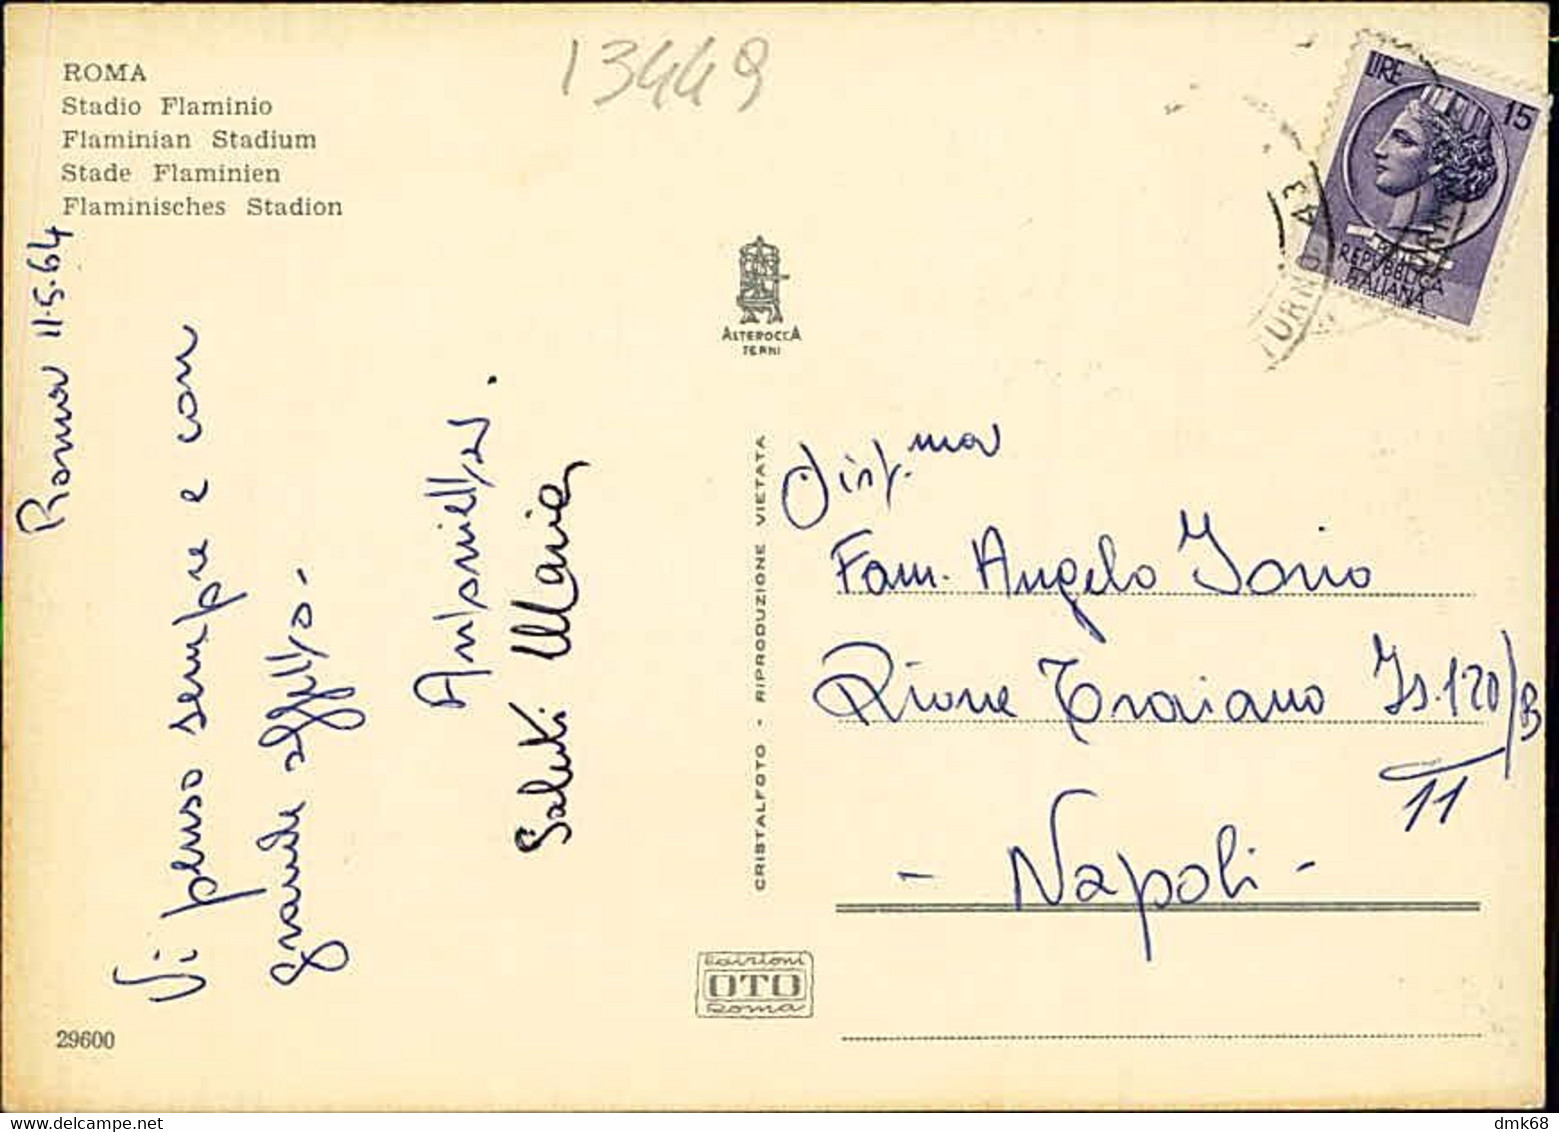 ROMA
Stadio Flaminio
Flaminian Stadium
Stade Flaminien
Flaminisches Stadion
13449
Roma 11.5.64
Vi penso sempre e con
grande affetto -
Antonietta.
Saluti Maria
29600
ALTEROCCA
TERNI
CRISTALFOTO - RIPRODUZIONE VIETATA
Edizioni
OTO
Roma
LIRE 15
REPUBBLICA
ITALIANA
43
TURNO
Fam. Angelo Iorio
Rione Traiano Is.120/B
11
- Napoli -
dmk68